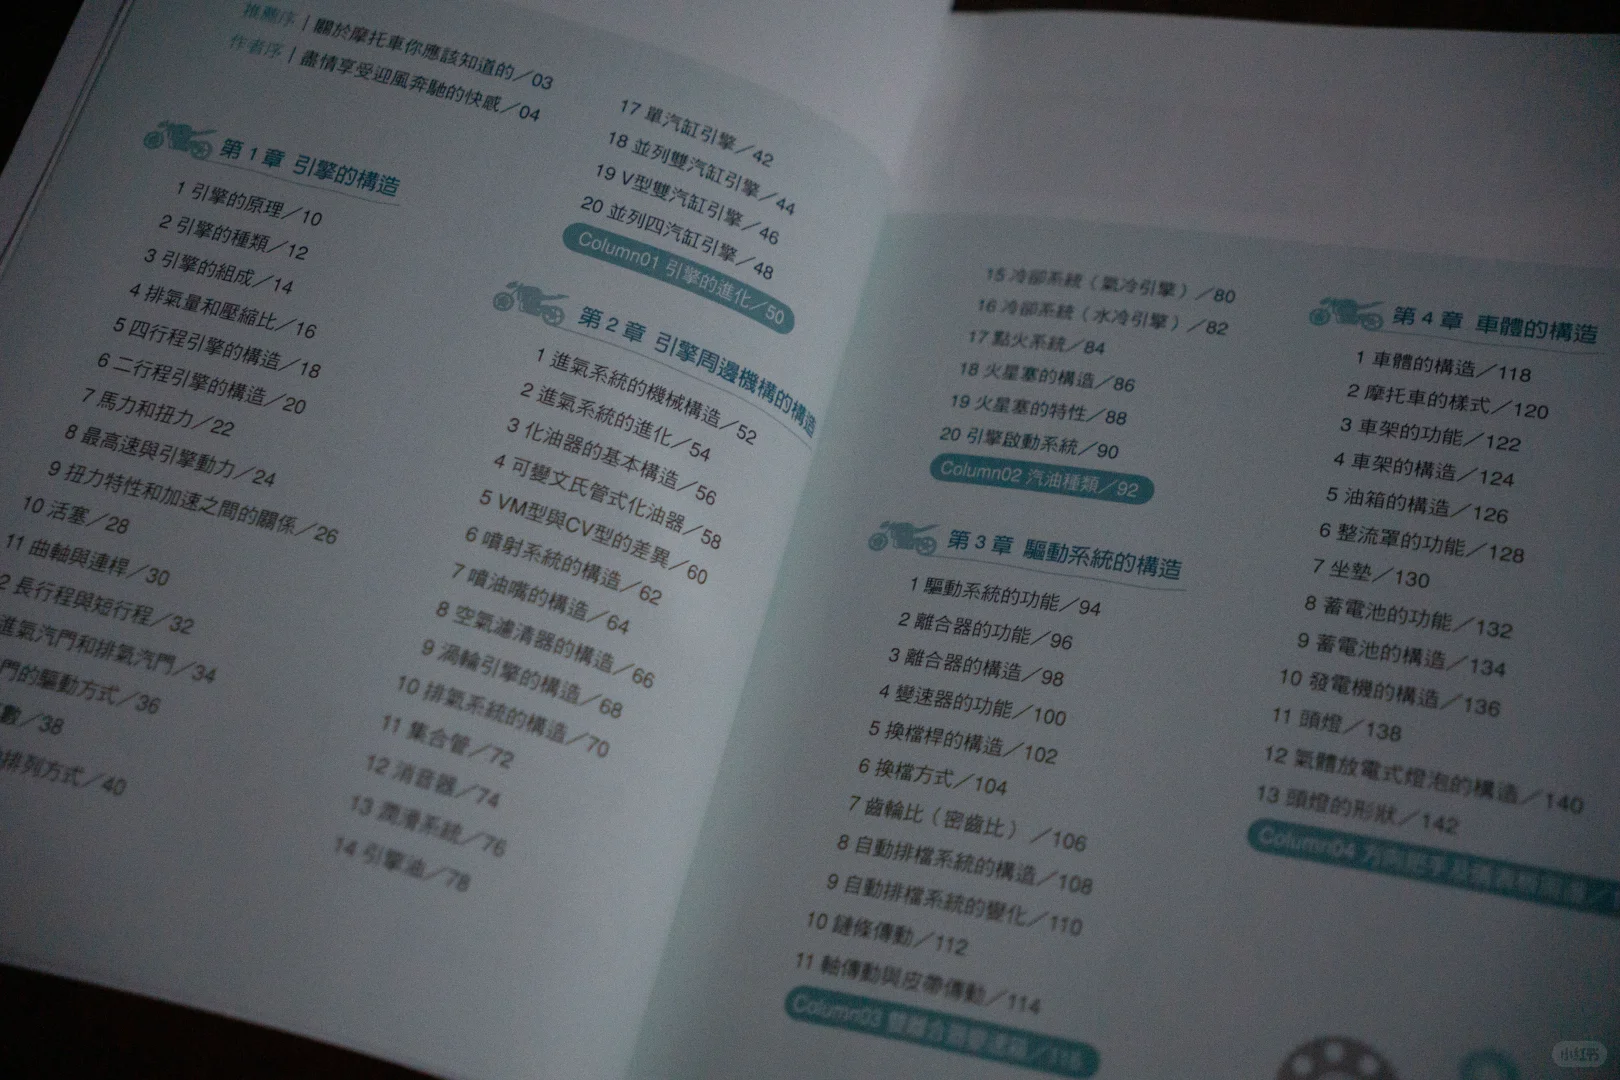 推薦序｜關於摩托車你應該知道的／03
作者序｜盡情享受迎風奔馳的快感／04
第1章 引擎的構造
1 引擎的原理／10
2 引擎的種類／12
3 引擎的組成／14
4 排氣量和壓縮比／16
5 四行程引擎的構造／18
6 二行程引擎的構造／20
7 馬力和扭力／22
8 最高速與引擎動力／24
9 扭力特性和加速之間的關係／26
10 活塞／28
11 曲軸與連桿／30
2 長行程與短行程／32
進氣汽門和排氣汽門／34
門的驅動方式／36
數／38
排列方式／40
17 單汽缸引擎／42
18 並列雙汽缸引擎／44
19 V型雙汽缸引擎／46
20 並列四汽缸引擎／48
Column01 引擎的進化／50
第2章 引擎周邊機構的構造
1 進氣系統的機械構造／52
2 進氣系統的進化／54
3 化油器的基本構造／56
4 可變文氏管式化油器／58
5 VM型與CV型的差異／60
6 噴射系統的構造／62
7 噴油嘴的構造／64
8 空氣濾清器的構造／66
9 渦輪引擎的構造／68
10 排氣系統的構造／70
11 集合管／72
12 消音器／74
13 潤滑系統／76
14 引擎油／78
15 冷卻系統（氣冷引擎）／80
16 冷卻系統（水冷引擎）／82
17 點火系統／84
18 火星塞的構造／86
19 火星塞的特性／88
20 引擎啟動系統／90
Column02 汽油種類／92
第3章 驅動系統的構造
1 驅動系統的功能／94
2 離合器的功能／96
3 離合器的構造／98
4 變速器的功能／100
5 換檔桿的構造／102
6 換檔方式／104
7 齒輪比（密齒比）／106
8 自動排檔系統的構造／108
9 自動排檔系統的變化／110
10 鏈條傳動／112
11 軸傳動與皮帶傳動／114
Column03 雙離合器變速箱／116
第4章 車體的構造
1 車體的構造／118
2 摩托車的樣式／120
3 車架的功能／122
4 車架的構造／124
5 油箱的構造／126
6 整流罩的功能／128
7 坐墊／130
8 蓄電池的功能／132
9 蓄電池的構造／134
10 發電機的構造／136
11 頭燈／138
12 氣體放電式燈泡的構造／140
13 頭燈的形狀／142
Column04 方向把手及
小红书